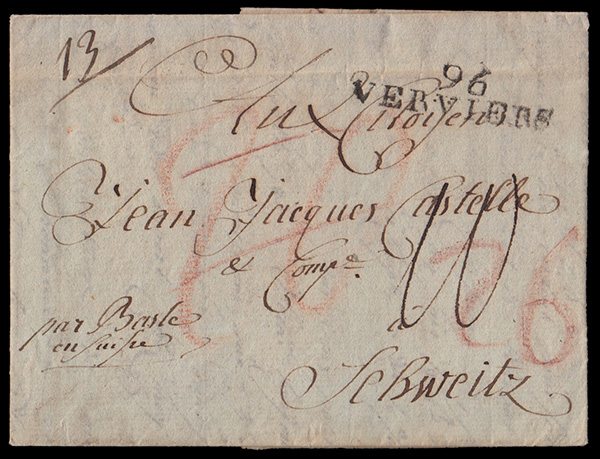 13
96
VERVIERS
Au Citoyen
Jean Jacques Castelle
& Comp.e
à
Schweitz
par Basle
en Suisse
26